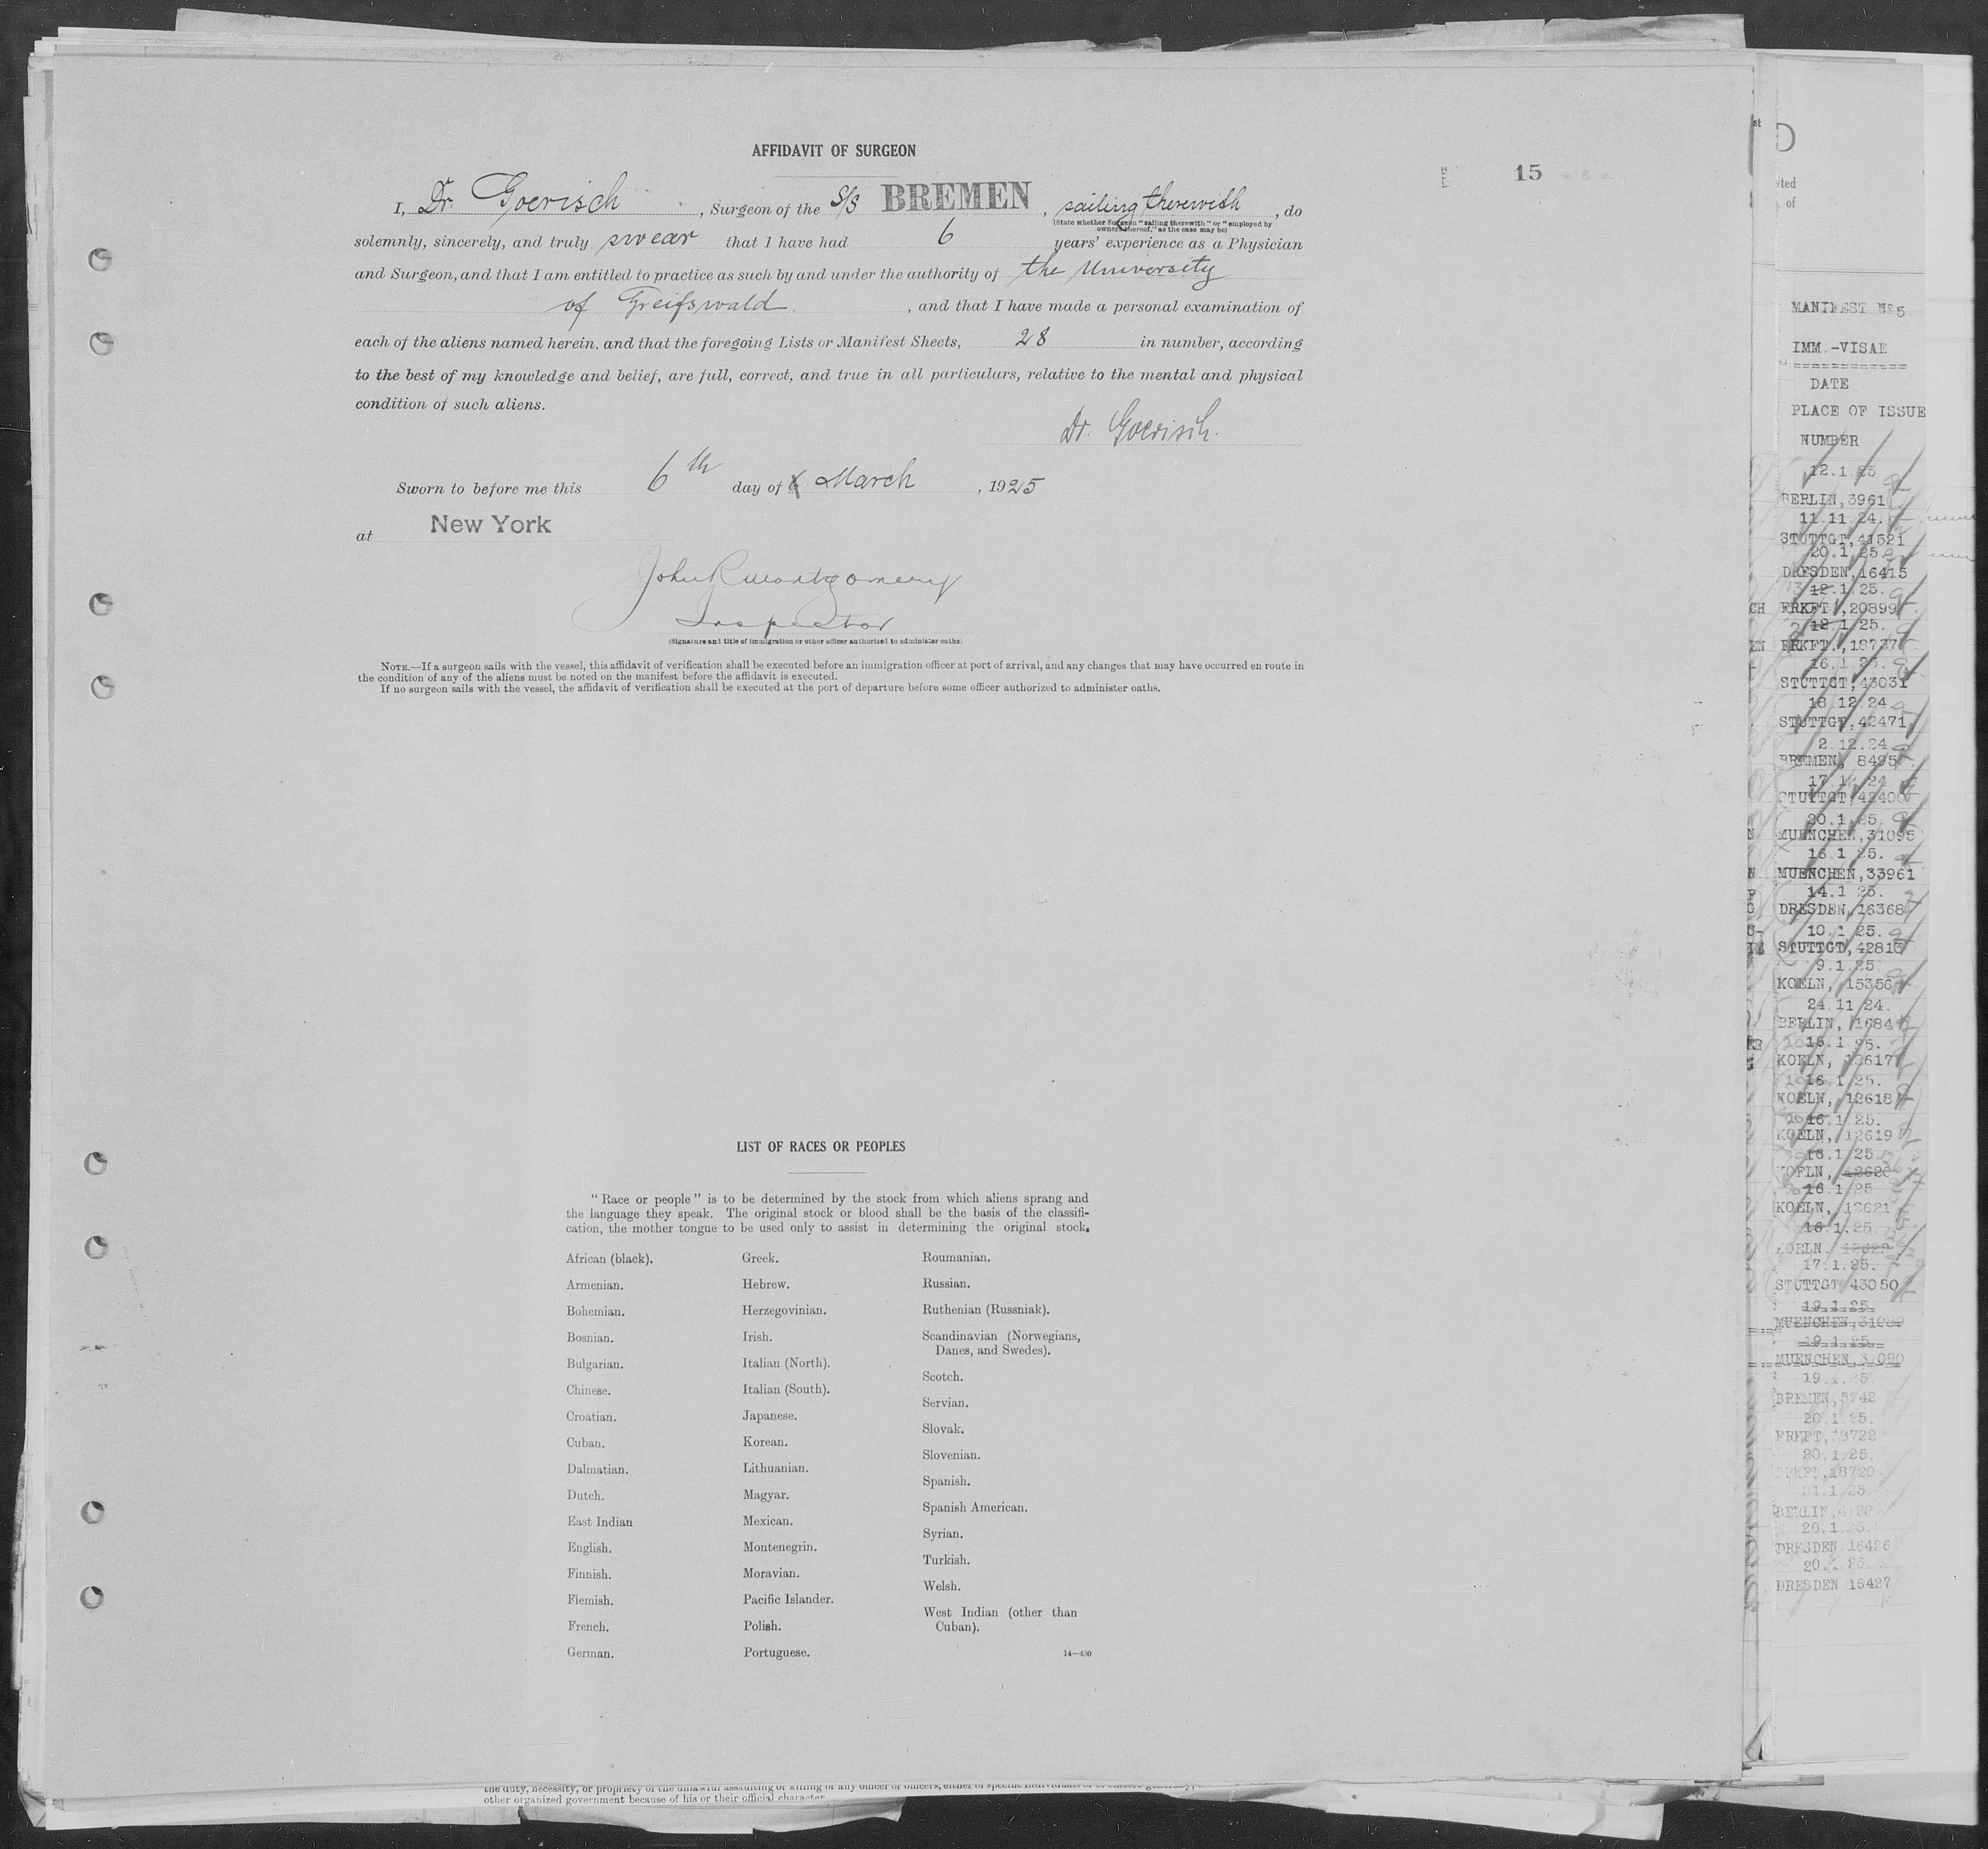 AFFIDAVIT OF SURGEON
15
I, Dr. Goerisch, Surgeon of the S/S BREMEN, sailing therewith, do
(State whether Surgeon "sailing therewith" or "employed by
owners thereof," as the case may be)
solemnly, sincerely, and truly swear that I have had 6 years' experience as a Physician
and Surgeon, and that I am entitled to practice as such by and under the authority of the University
of Greifswald, and that I have made a personal examination of
each of the aliens named herein, and that the foregoing Lists or Manifest Sheets, 28 in number, according
to the best of my knowledge and belief, are full, correct, and true in all particulars, relative to the mental and physical
condition of such aliens.
Dr. Goerisch.
Sworn to before me this 6th day of March, 1925
at New York
John R Montgomery
Inspector
(Signature and title of immigration or other officer authorized to administer oaths)
NOTE.—If a surgeon sails with the vessel, this affidavit of verification shall be executed before an immigration officer at port of arrival, and any changes that may have occurred en route in
the condition of any of the aliens must be noted on the manifest before the affidavit is executed.
If no surgeon sails with the vessel, the affidavit of verification shall be executed at the port of departure before some officer authorized to administer oaths.
LIST OF RACES OR PEOPLES
"Race or people" is to be determined by the stock from which aliens sprang and
the language they speak. The original stock or blood shall be the basis of the classifi-
cation, the mother tongue to be used only to assist in determining the original stock.
African (black).
Armenian.
Bohemian.
Bosnian.
Bulgarian.
Chinese.
Croatian.
Cuban.
Dalmatian.
Dutch.
East Indian
English.
Finnish.
Flemish.
French.
German.
Greek.
Hebrew.
Herzegovinian.
Irish.
Italian (North).
Italian (South).
Japanese.
Korean.
Lithuanian.
Magyar.
Mexican.
Montenegrin.
Moravian.
Pacific Islander.
Polish.
Portuguese.
Roumanian.
Russian.
Ruthenian (Russniak).
Scandinavian (Norwegians,
Danes, and Swedes).
Scotch.
Servian.
Slovak.
Slovenian.
Spanish.
Spanish American.
Syrian.
Turkish.
Welsh.
West Indian (other than
Cuban).
14—430
the duty, necessity, or propriety of the unlawful assaulting or killing of any officer or officers, either of specific individuals or of officers generally,
other organized government because of his or their official character
MANIFEST No 5
IMM.-VISAE
DATE
PLACE OF ISSUE
NUMBER
12.1.25
BERLIN, 3961
11.11.24.
STUTTGT, 41521
20.1.25.
DRESDEN, 16415
12.1.25.
FRKFT., 20899
12.1.25.
FRKFT., 18737
16.1.25.
STUTTGT, 43031
18.12.24
STUTTGT, 42471
2.12.24
BREMEN, 8495
24
STUTTGT, 42400
20.1.25.
MUENCHEN, 31095
16.1.25.
MUENCHEN, 33961
14.1.25.
DRESDEN, 16368
10.1.25.
STUTTGT, 42813
9.1.25
KOELN, 15356
24.11.24.
BERLIN, 1684
16.1.25.
KOELN, 12617
16.1.25.
KOELN, 12618
16.1.25.
KOELN, 12619
16.1.25
KOELN, 12620
16.1.25
KOELN, 12621
16.1.25.
KOELN.
17.1.25.
STUTTGT 43050
19.1.25
MUENCHEN,
19.1.25
MUENCHEN, 31090
19.1.25.
BREMEN,
20.1.25.
FRKFT, 18722
20.1.25.
FRKFT, 18720
25
BERLIN,
20.1.25.
DRESDEN 16426
20.1.25.
DRESDEN 16427